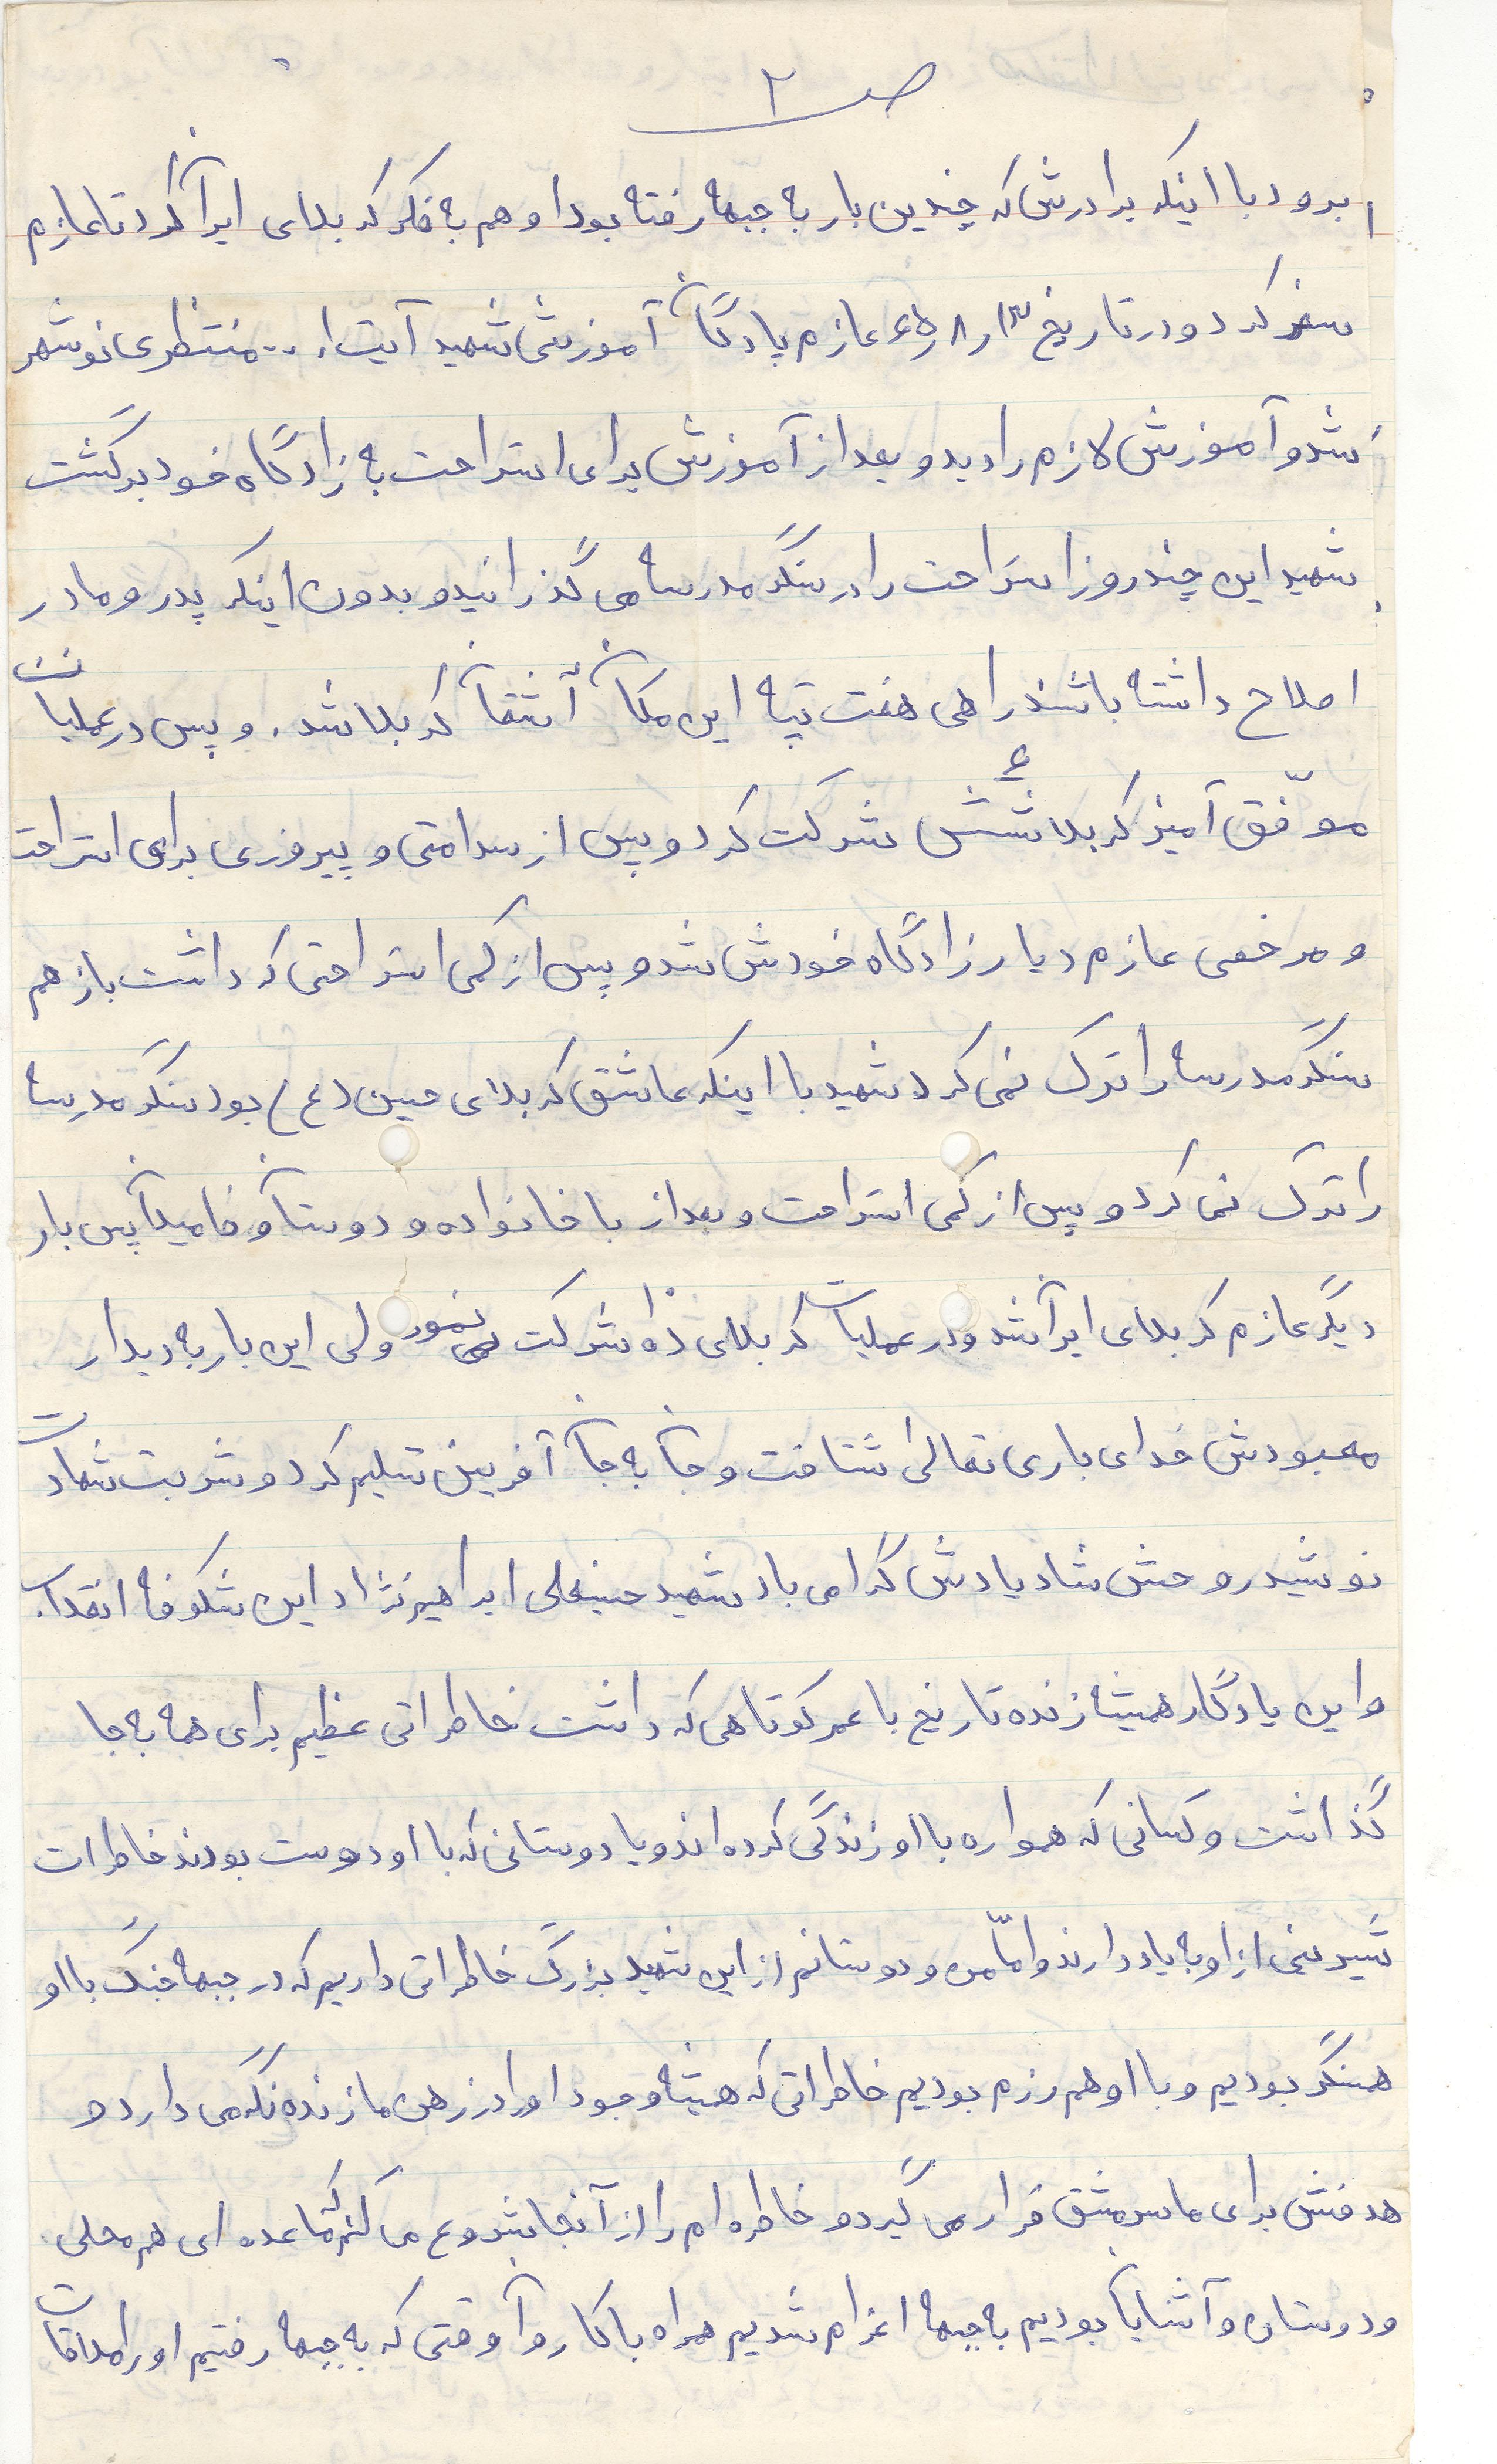 ص ۲
برود با اینکه برادرش که چندین بار به جبهه رفته بود او هم به فکر کربلای ایران کرد تا عازم
سفر کرد و در تاریخ ۱۳ر۸ر۶۵ عازم پادگان آموزشی شهید آیت ا... منتظری نوشهر
شد و آموزش لازم را دید و بعد از آموزش برای استراحت به زادگاه خود برگشت
شهید این چند روز استراحت را در سنگر مدرسه می گذرانید و بدون اینکه پدر و مادر
اطلاع داشته باشند راهی هفت تپه این مکان آشقان کربلا شد. و پس در عملیات
موفّق آمیز کربلا شش ۶ شرکت کرد و پس از سلامتی و پیروزی برای استراحت
و مرخصی عازم دیار زادگاه خودش شد و پس از کمی استراحتی که داشت باز هم
سنگر مدرسه را ترک نمی کرد شهید با اینکه عاشق کربلای حسین (ع) بود سنگر مدرسه
را ترک نمی کرد و پس از کمی استراحت و بعد از با خانواده و دوستان و فامیلان پس بار
دیگر عازم کربلای ایران شد و در عملیات کربلای ۱۰ ده شرکت می نمود ولی این بار به دیدار
معبودش خدای باری تعالی شتافت و جان به جان آفرین تسلیم کرد و شربت شهادت
نوشید روحش شاد یادش گرامی باد شهید حسینعلی ابراهیم نژاد این شکوفه انقلاب
و این یادگار همیشه زنده تاریخ با عمر کوتاهی که داشت خاطراتی عظیم برای همه به جا
گذاشت و کسانی که همواره با او زندگی کرده اند و یا دوستانی که با او دوست بودند خاطرات
شیرینی از او به یاد دارند و امّا من و دوستانم از این شهید بزرگ خاطراتی داریم که در جبهه جنگ با او
همسنگر بودیم و با او هم رزم بودیم خاطراتی که همیشه وجود او را در ذهن ما زنده نگه می دارد و
هدفش برای ما سرمشق قرار می گیرد و خاطره ام را از آنجا شروع می کنم که ما عده ای هم محلی
و دوستان و آشنایان بودیم به جبهه اعزام شدیم همراه با کاروان وقتی که به جبهه رفتیم او را ملاقات